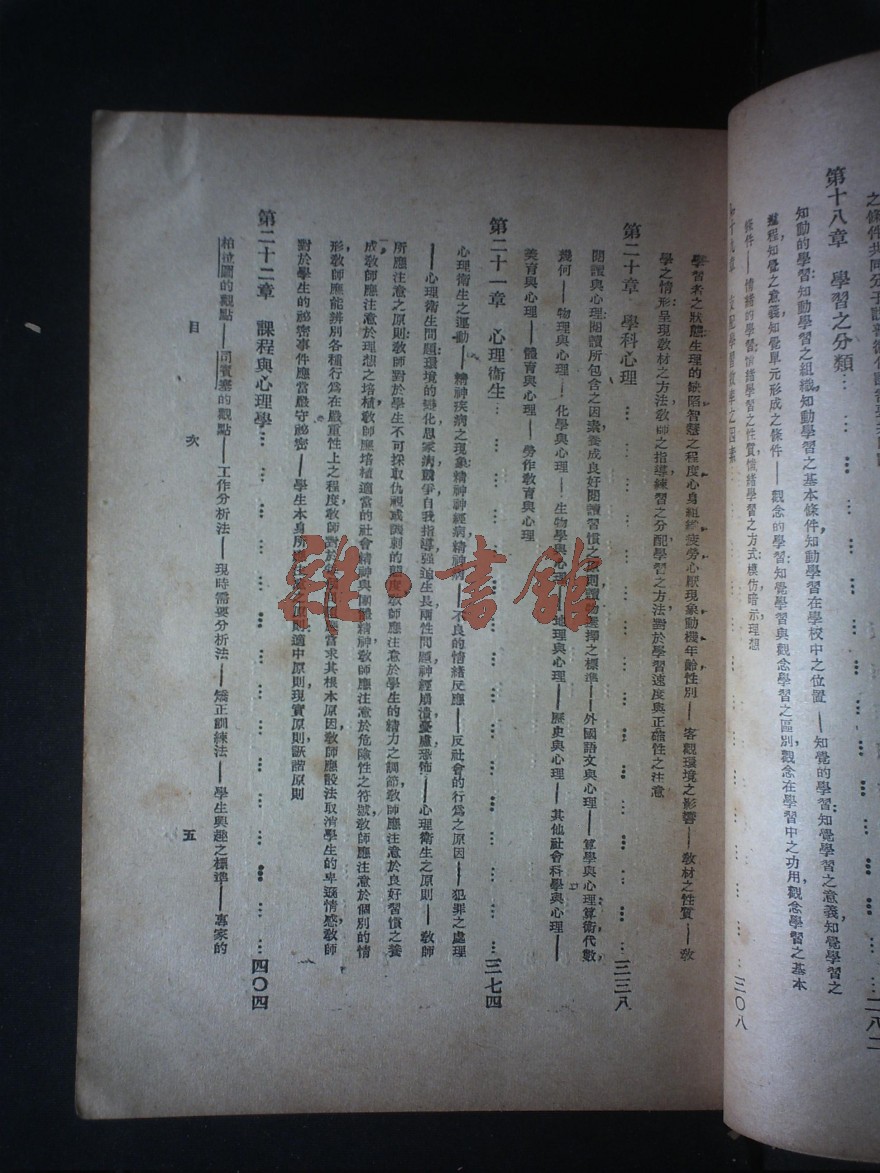 之條件
第十八章 學習之分類… … … … … … … … … … 二八二
知動的學習:知動學習之組織,知動學習之基本條件,知動學習在學校中之位置——知覺的學習:知覺學習之意義,知覺學習之
歷程,知覺之意義,知覺單元形成之條件——觀念的學習:知覺學習與觀念學習之區別,觀念在學習中之功用,觀念學習之基本
條件——情緒的學習:情緒學習之性質,情緒學習之方式:模仿,暗示,理想
第十九章 支配學習效率之因素 … … … … … 三〇八
學習者之狀態:生理的缺陷,智慧之程度,心身組織,疲勞,心厭現象,動機,年齡,性別——客觀環境之影響——教材之性質——教
學之情形:呈現教材之方法,教師之指導,練習之分配,學習之方法,對於學習速度與正確性之注意
第二十章 學科心理 … … … … … … … … … … 三三八
閱讀與心理:閱讀所包含之因素,養成良好閱讀習慣之原則,讀物選擇之標準——外國語文與心理——算學與心理:算術,代數,
幾何——物理與心理——化學與心理——生物學與心理——地理與心理——歷史與心理——其他社會科學與心理——
美育與心理——體育與心理——勞作教育與心理
第二十一章 心理衞生… … … … … … … … … … 三七四
心理衞生之運動——精神疾病之現象:精神神經病,精神病——不良的情緒反應——反社會的行爲之原因——犯罪之處理
——心理衞生問題:環境的變化,思家病,競爭,自我指導,强迫生長,兩性問題,神經崩潰,憂慮,恐怖——心理衞生之原則——教師
所應注意之原則:教師對於學生不可採取仇視或諷刺的態度,教師應注意於學生的精力之調節,教師應注意於良好習慣之養
成,教師應注意於理想之培植,教師應培植適當的社會精神與團體精神,教師應注意於危險性之符號,教師應注意於個別的情
形,教師應能辨別各種行爲在嚴重性上之程度,教師對於 求其根本原因,教師應設法取消學生的卑遜情感,教師
對於學生的祕密事件應當嚴守祕密——學生本身所應注意之原則:適中原則,現實原則,詼諧原則
第二十二章 課程與心理學… … … … … … … … … … 四〇四
柏拉圖的觀點——司賓塞的觀點——工作分析法——現時需要分析法——矯正訓練法——學生興趣之標準——專家的
目 次
五
雜·書館